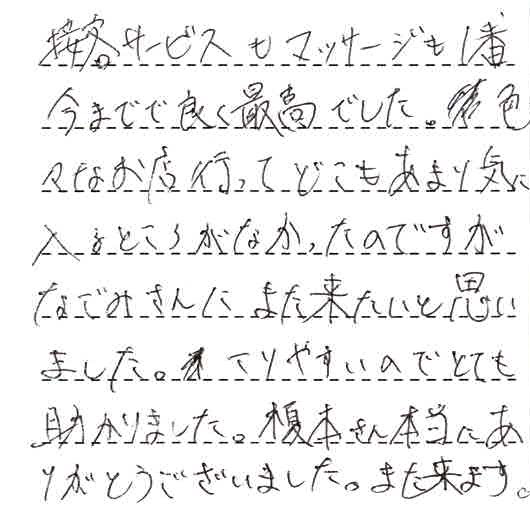 接客サービスもマッサージも1番
今までで良く最高でした。色
々なお店行ってどこもあまり気に
入るところがなかったのですが
なごみさんにまた来たいと思い
ました。 てりやすいのでとても
助かりました。榎本さん本当にあ
りがとうございました。また来ます。